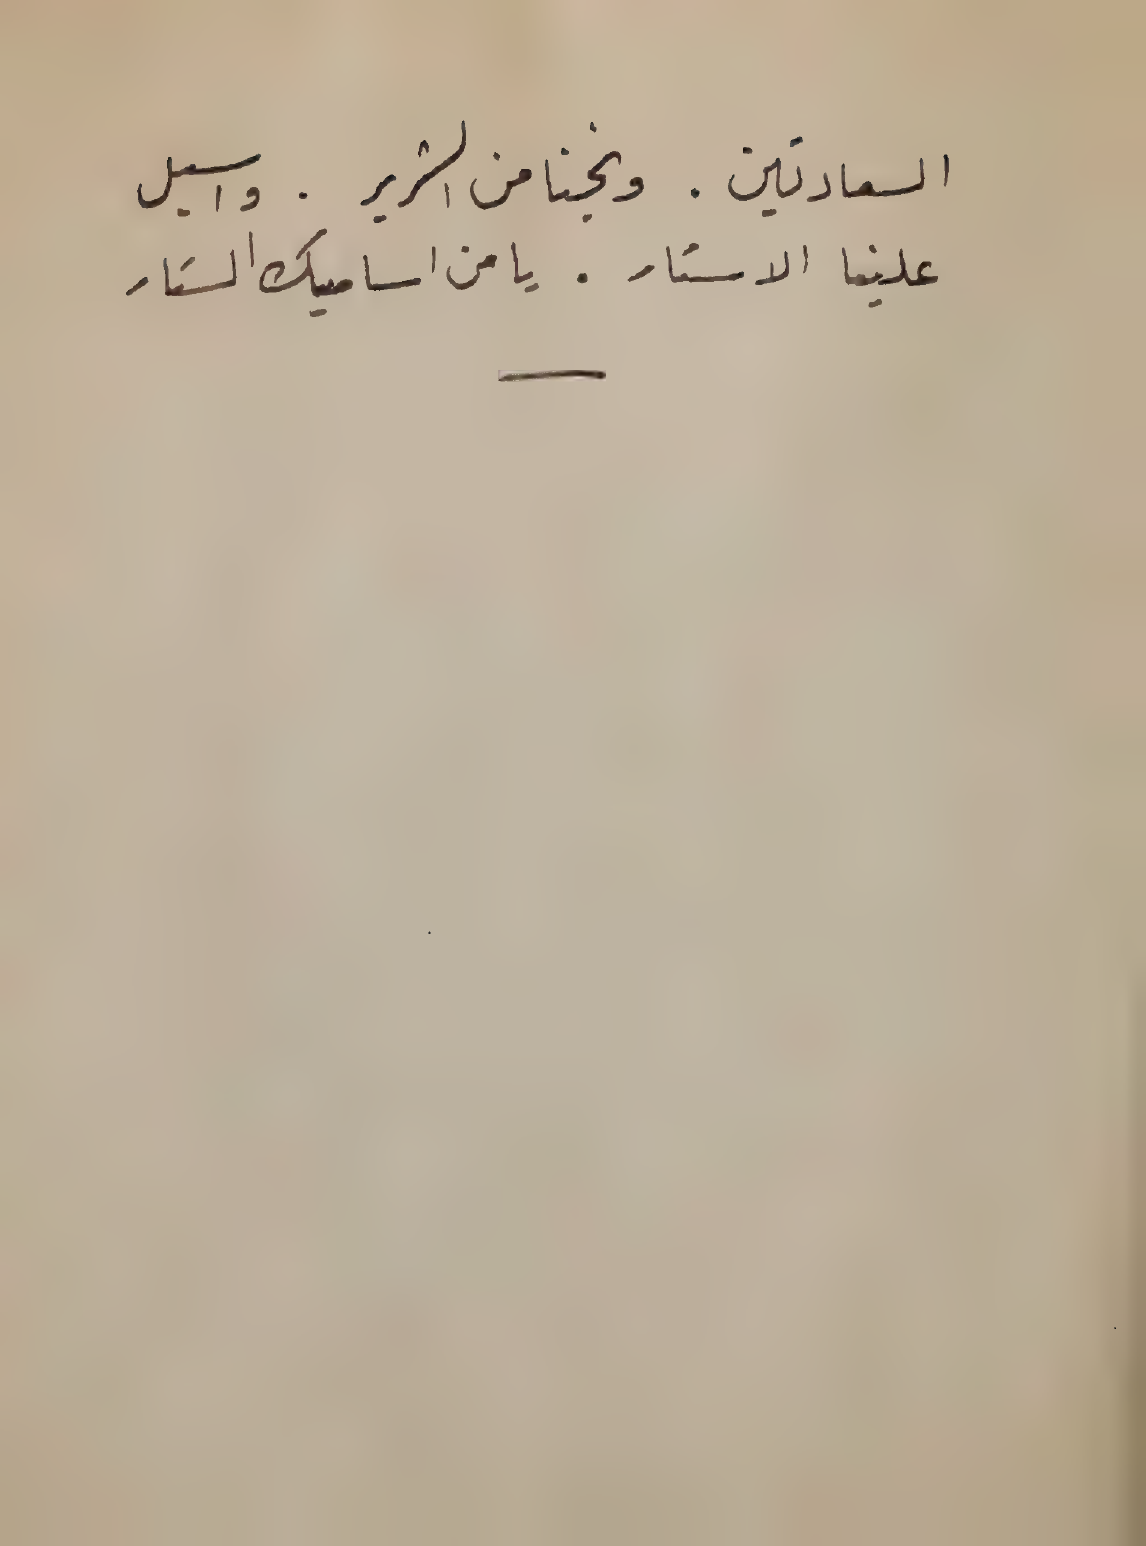 السعادتين . ونجنا من الشرير . واسبل
علينا الاستار . يا من اساميك الستار